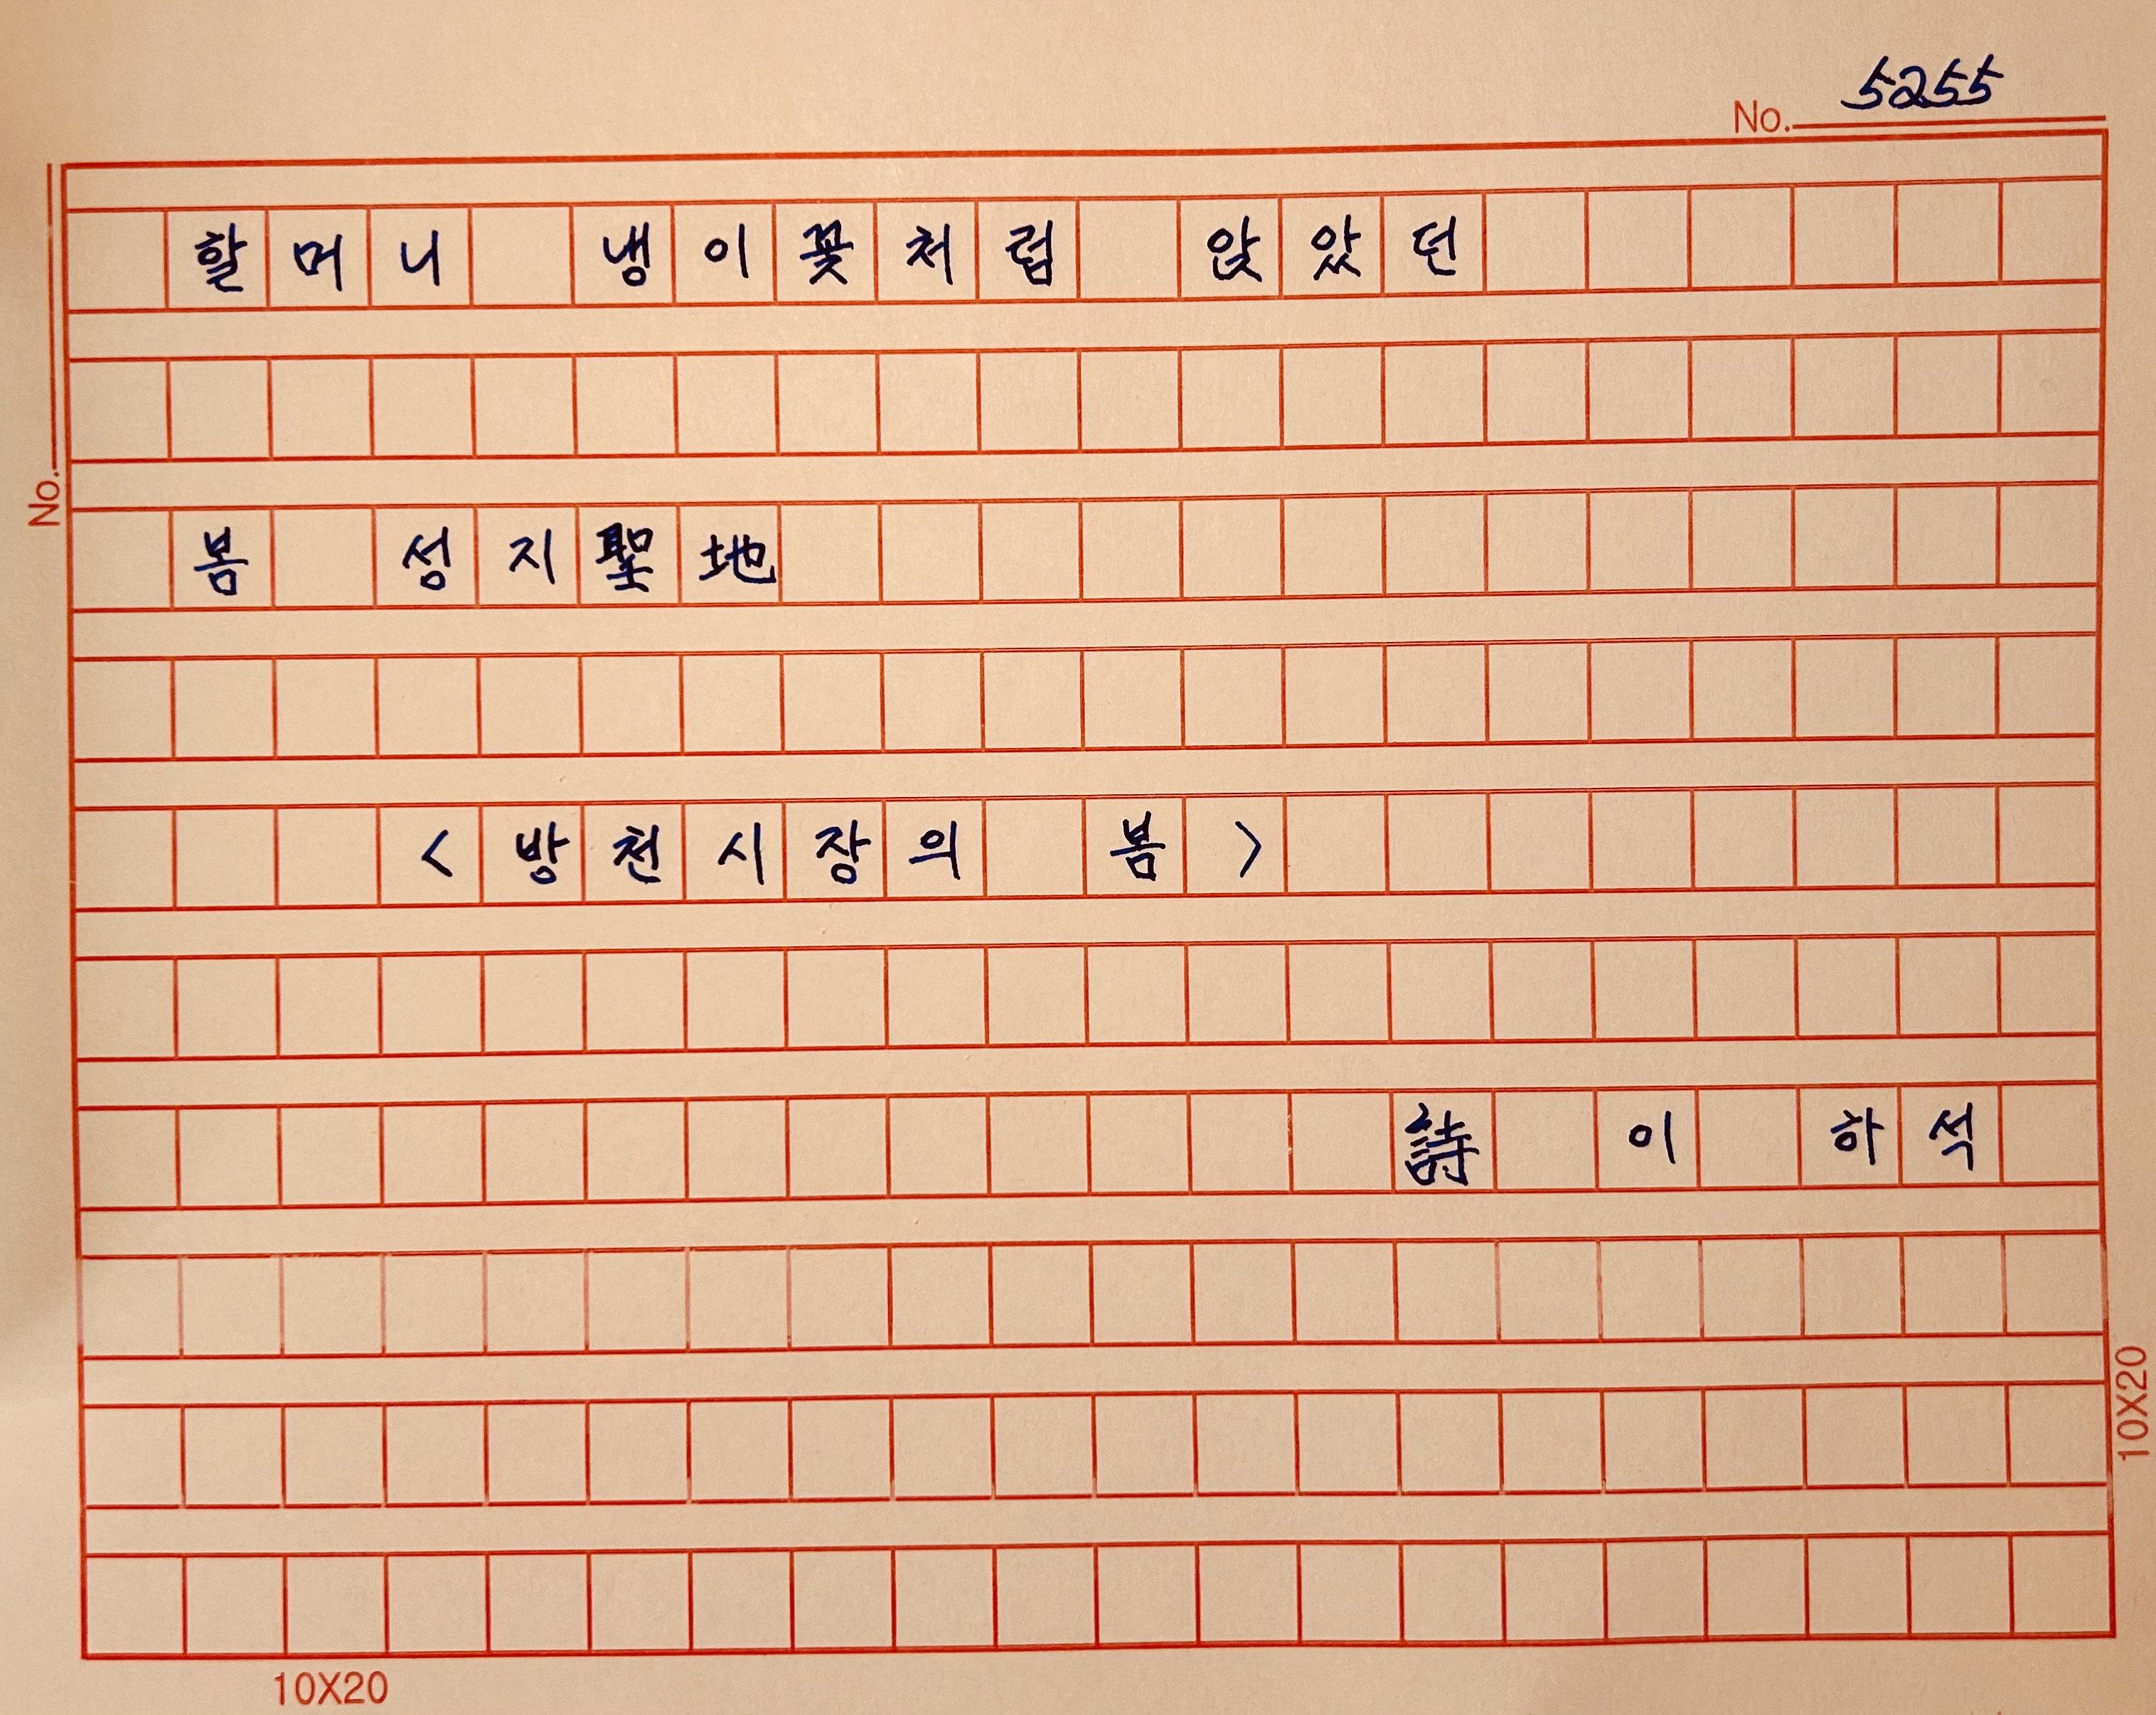 5255
No.
할머니 냉이꽃처럼 앉았던
No.
봄 성지聖地
<방천시장의 봄>
詩 이 하석
10X20
10X20